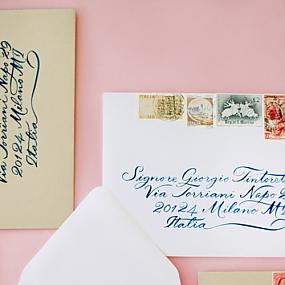 Via Torriani Napo 29
20124 Milano MI
Italia
ITALIA
Signore Giorgio Tintoret
Via Torriani Napo 2
20124 Milano M
Italia